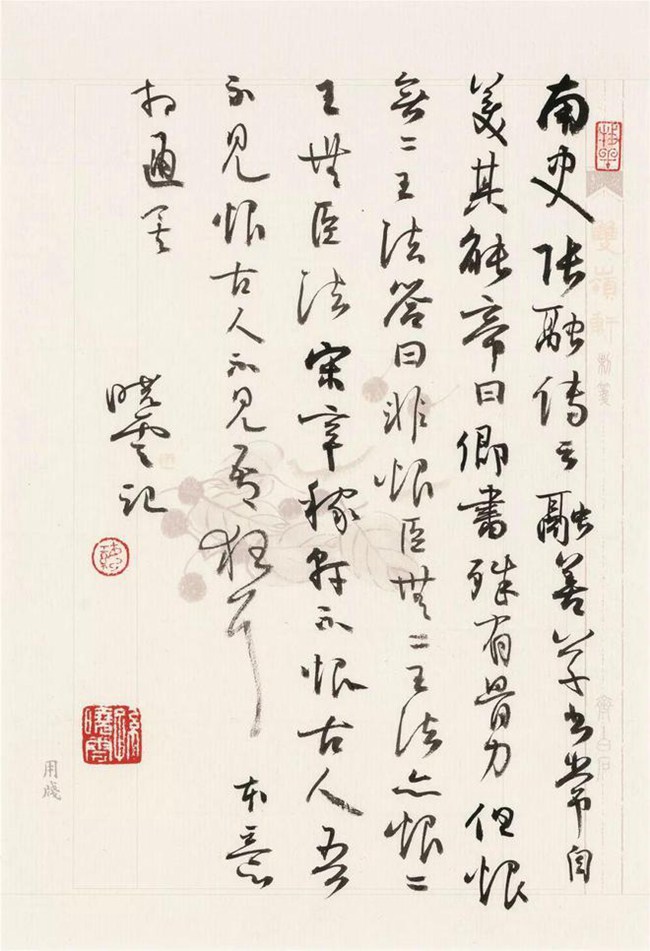 南史張融傳云融善草書常自
美其能帝曰卿書殊有骨力但恨
無二王法答曰非恨臣無二王法亦恨二
王無臣法宋辛稼軒不恨古人吾
不見恨古人不見吾狂耳 本意
相通矣
曉雲記
孫曉雲
雙嶺軒
齊白石
用箋